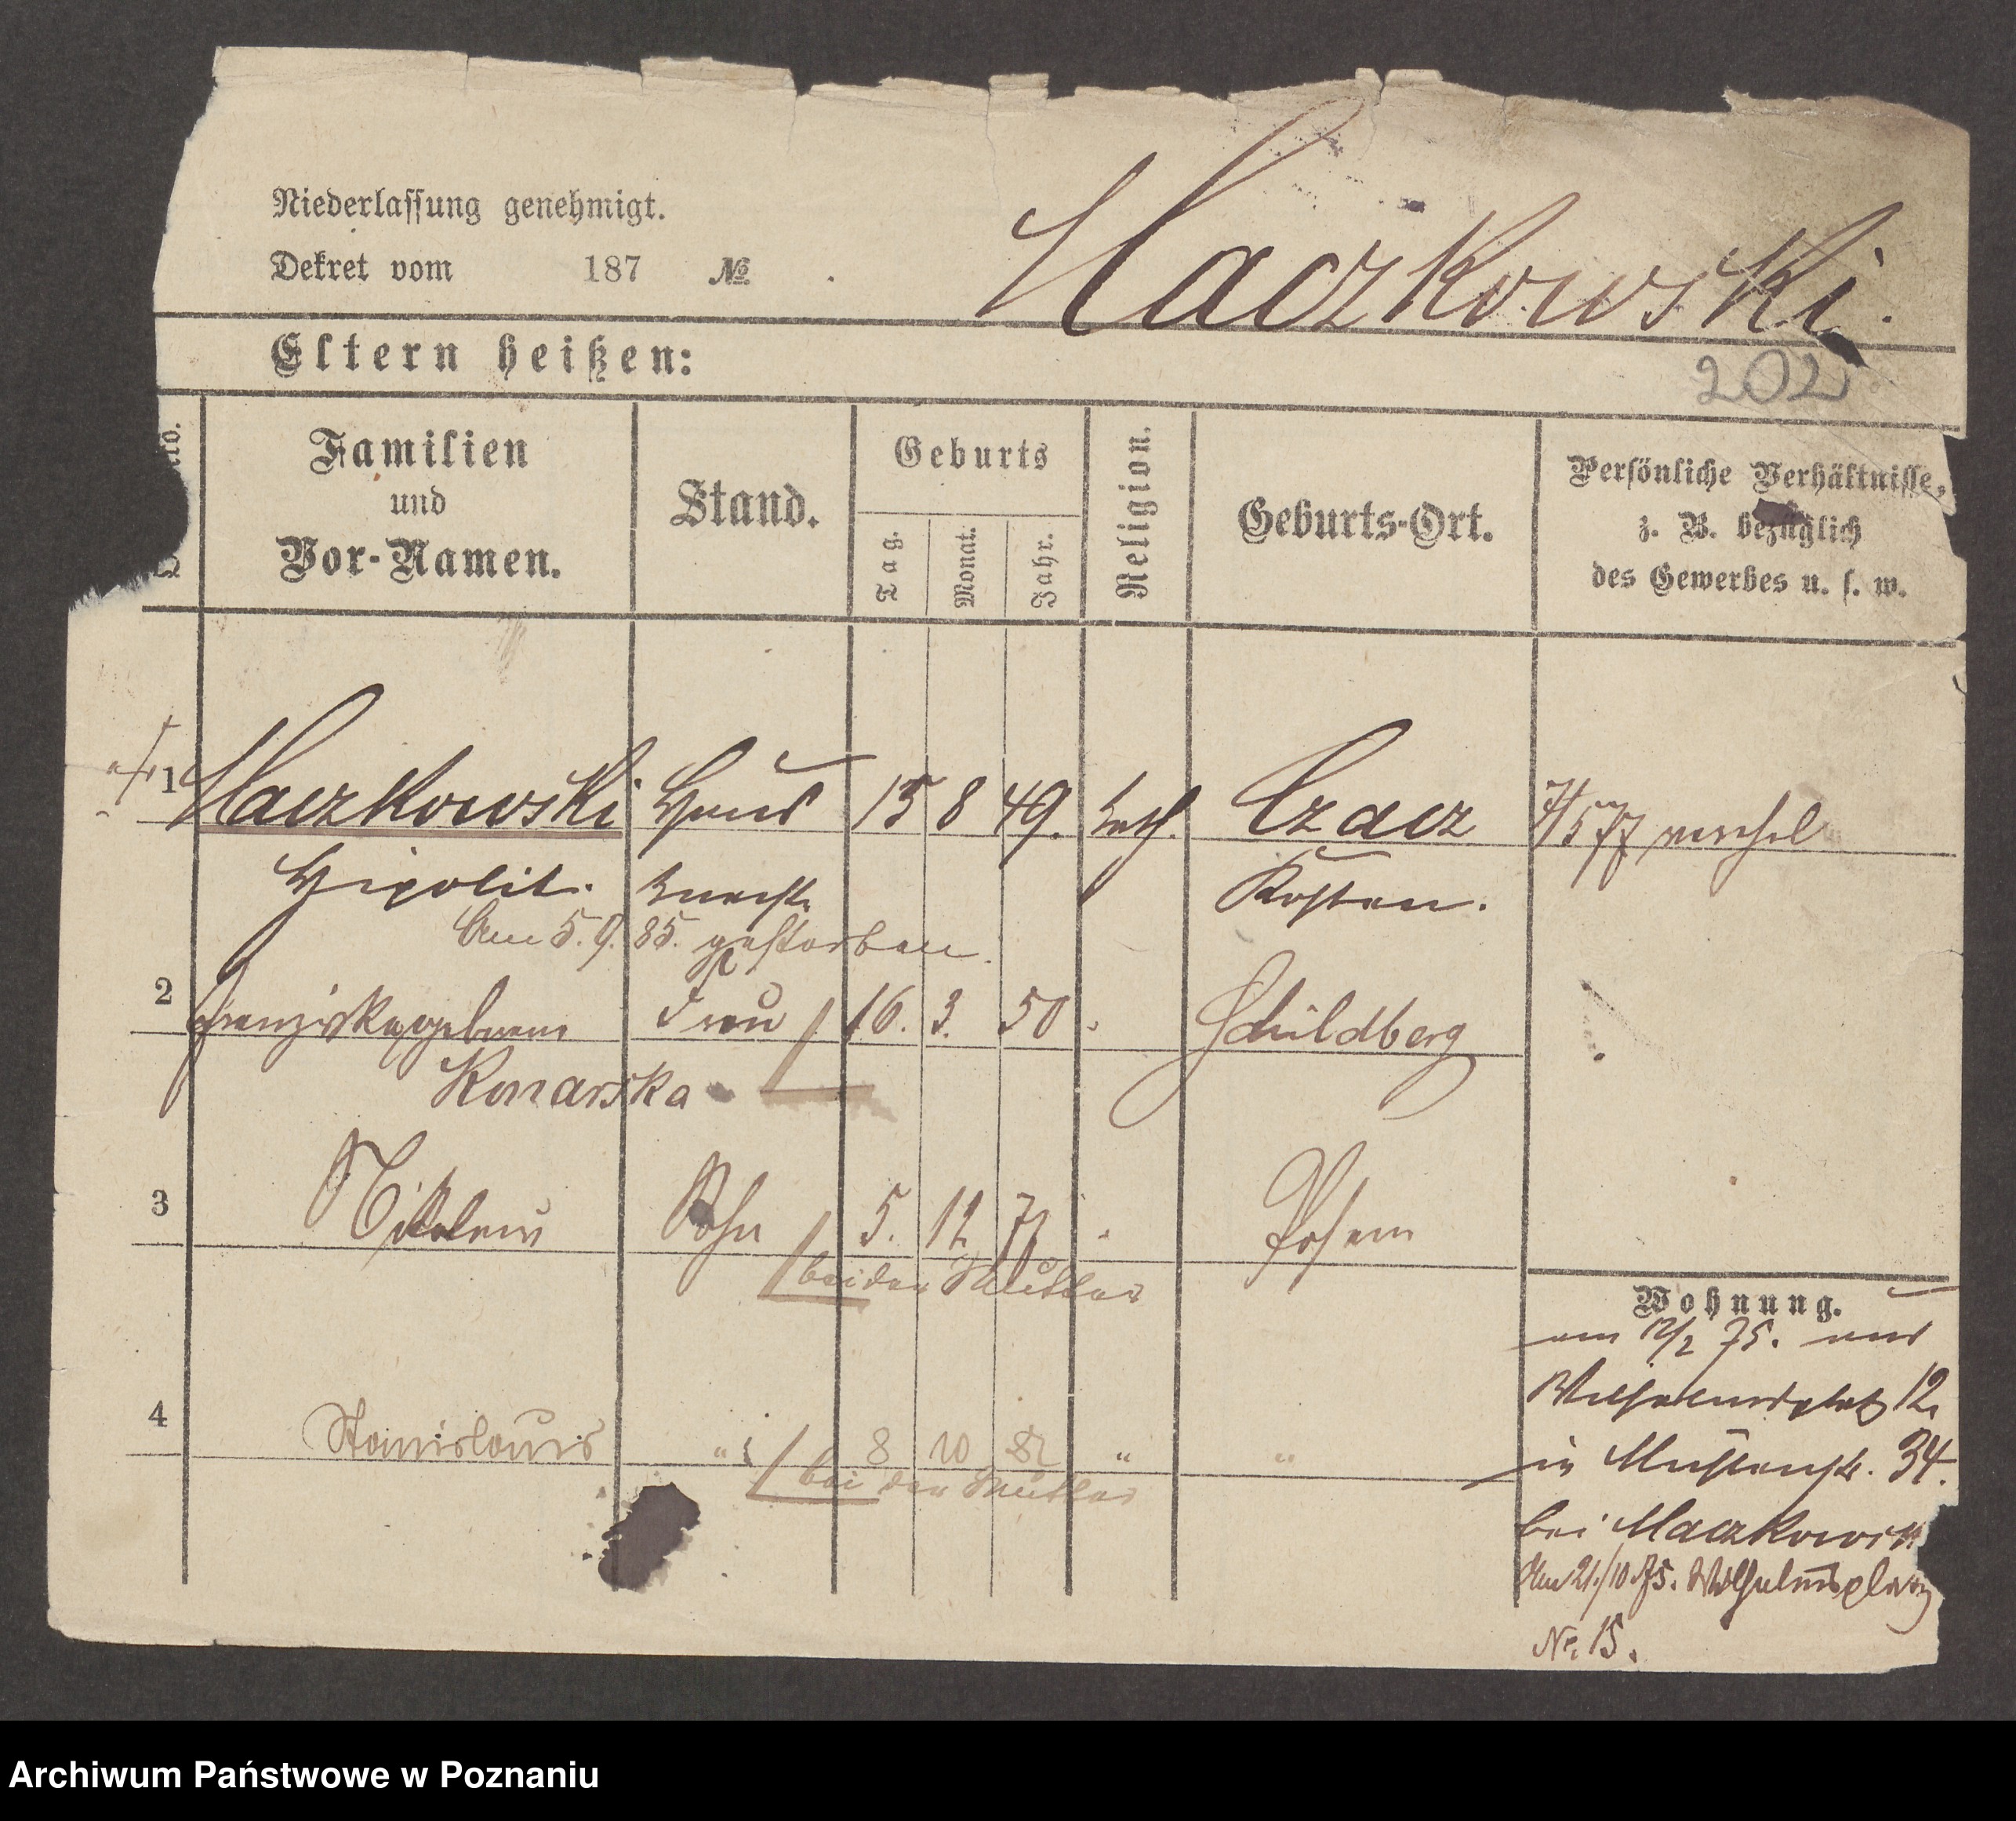 Niederlassung genehmigt.
Dekret vom 187 №
Maczkowski.
Eltern heißen:
202
Familien und Vor-Namen.
Stand.
Geburts
Tag.
Monat.
Jahr.
Religion.
Geburts-Ort.
Persönliche Verhältnisse, z. B. bezüglich des Gewerbes u. s. w.
1 Maczkowski Haus 15 8 49. kath. Czacz 7/5 77
Hipolit. knecht Kosten.
Am 5. 9. 85. gestorben.
2 Franziska geborene Frau 16. 3. 50 Schildberg
Konarska
3 Sohn 5. 12 77 Posen
bei der Mutter
4 Stanislaus " 8 10 82 " "
bei der Mutter
Wohnung.
am 12/2 75. aus
Wilhelmsplatz 12.
in 34.
bei Maczkowski
Am 21./10 75. Wilhelmsplatz
No. 15.
Archiwum Państwowe w Poznaniu